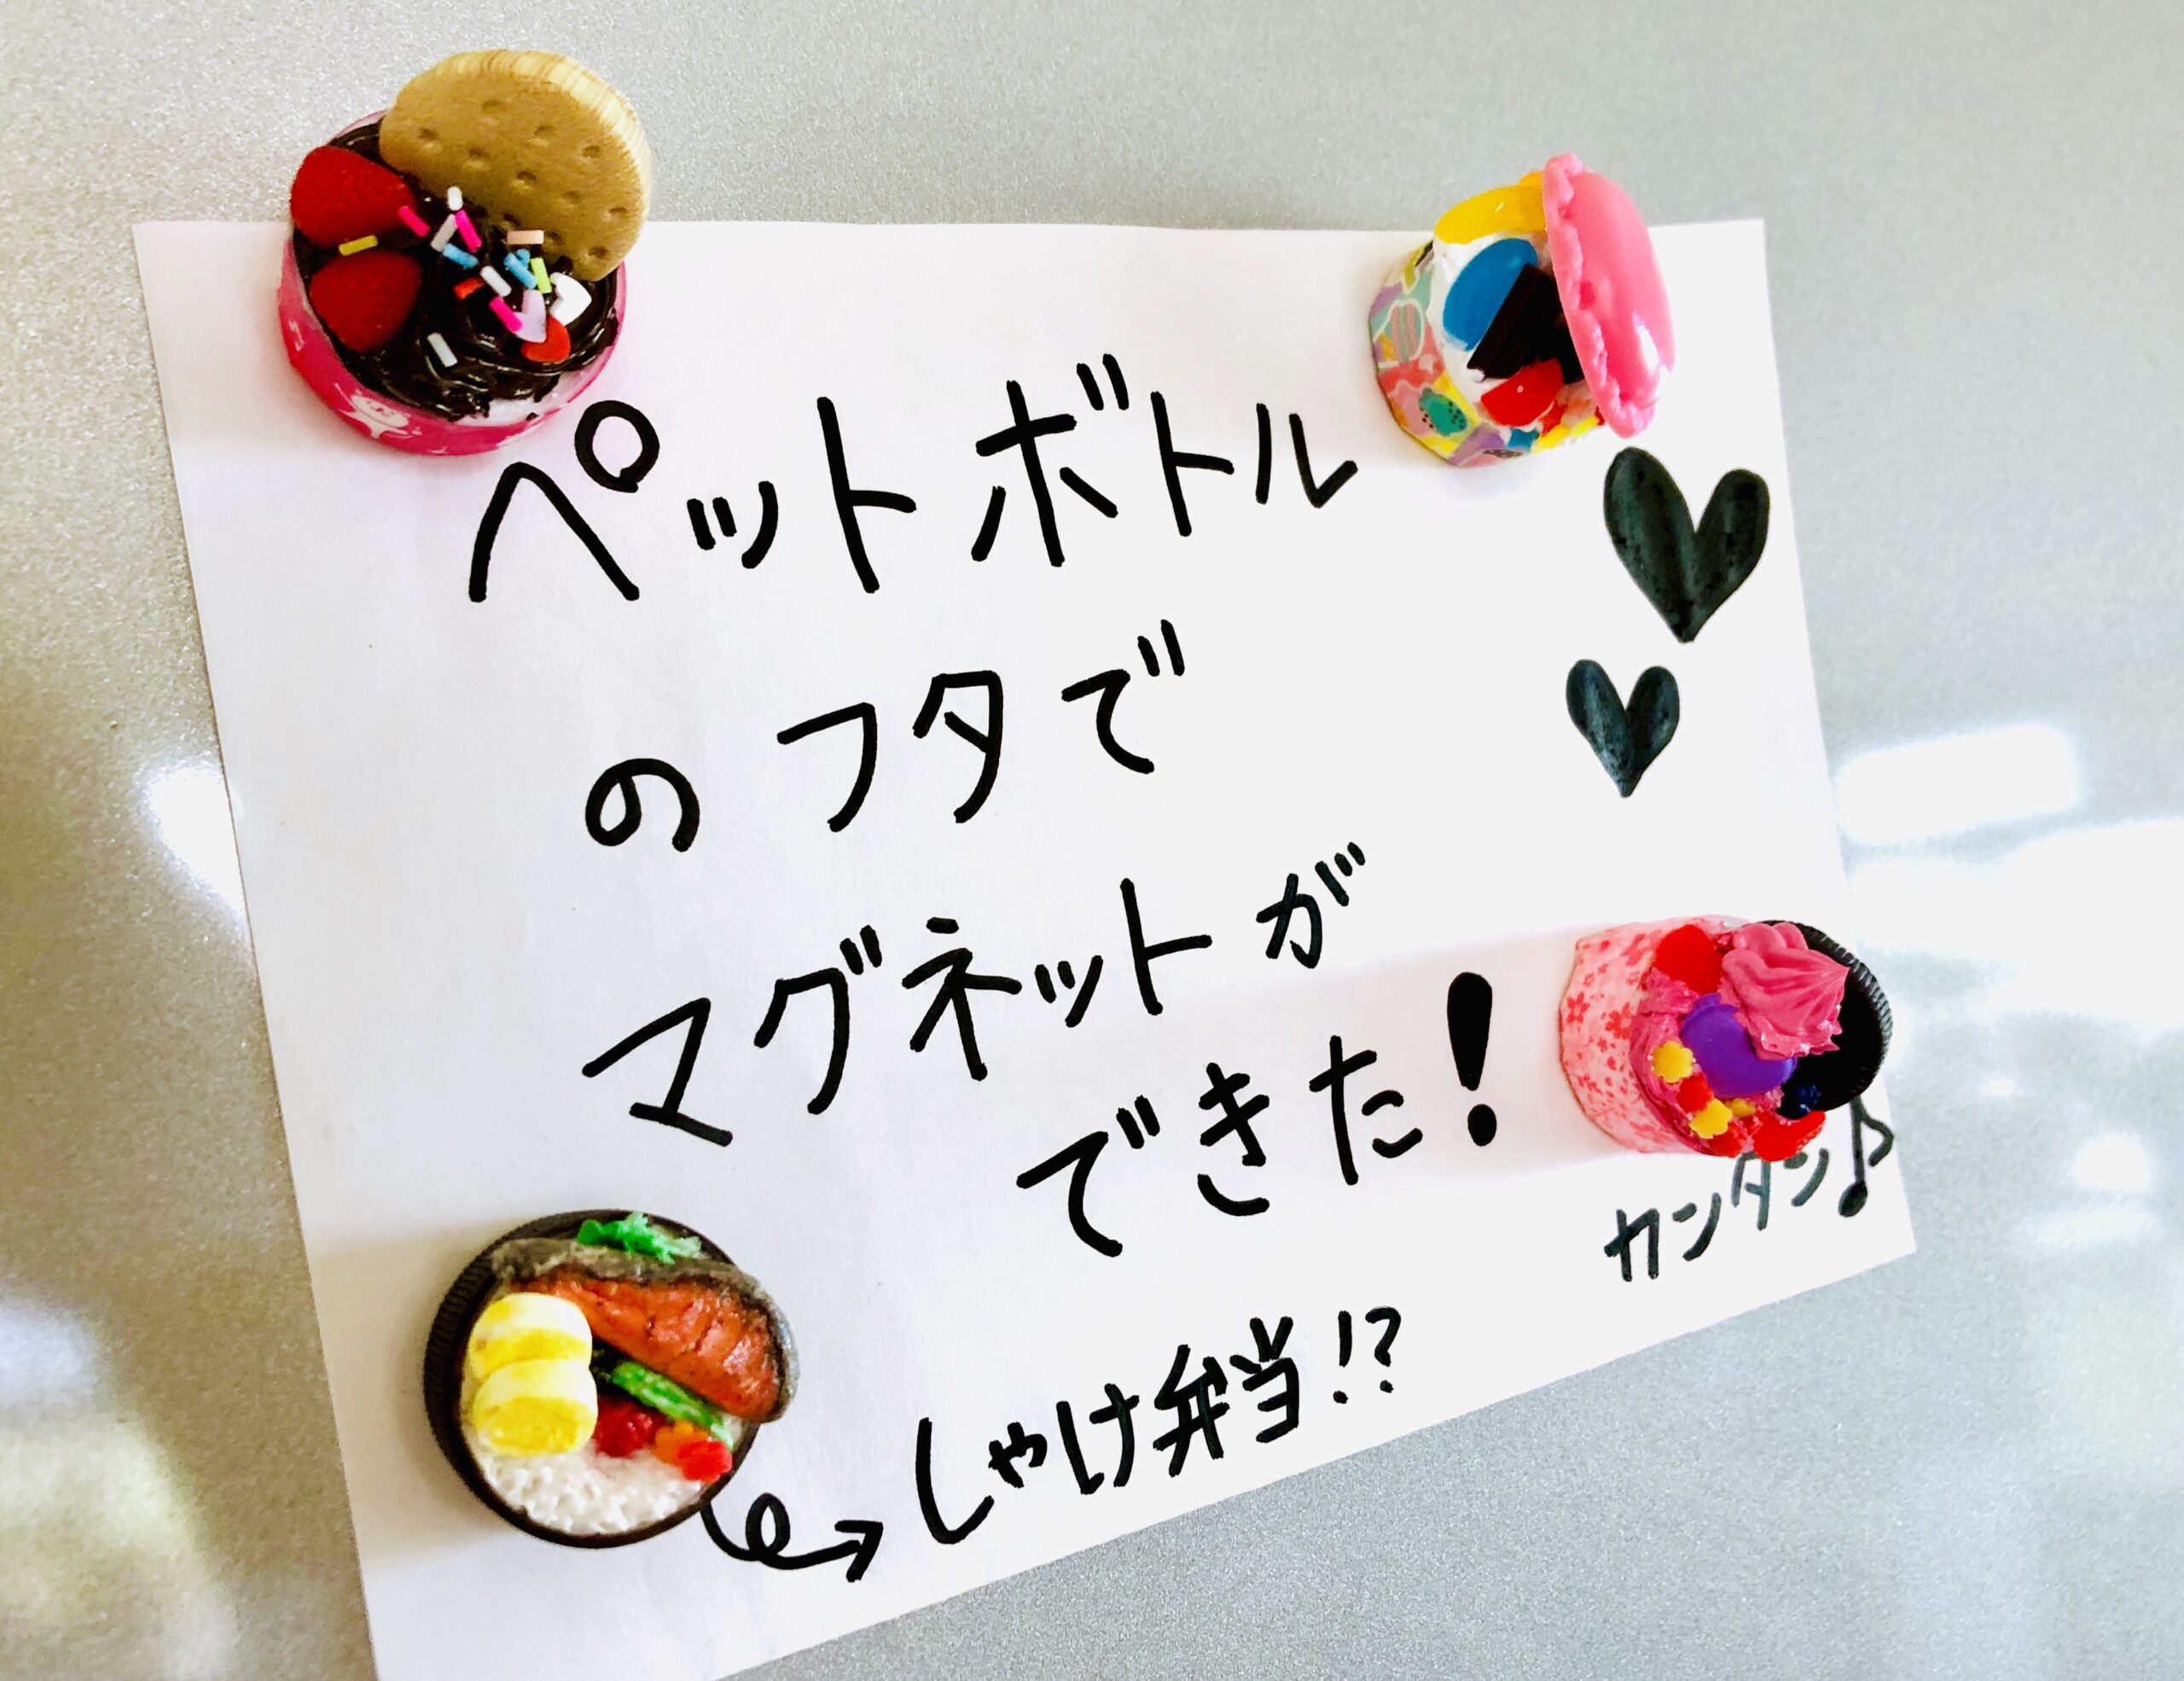 ペットボトル
のフタで
マグネットが
できた!
カンタン♪
しゃけ弁当!?